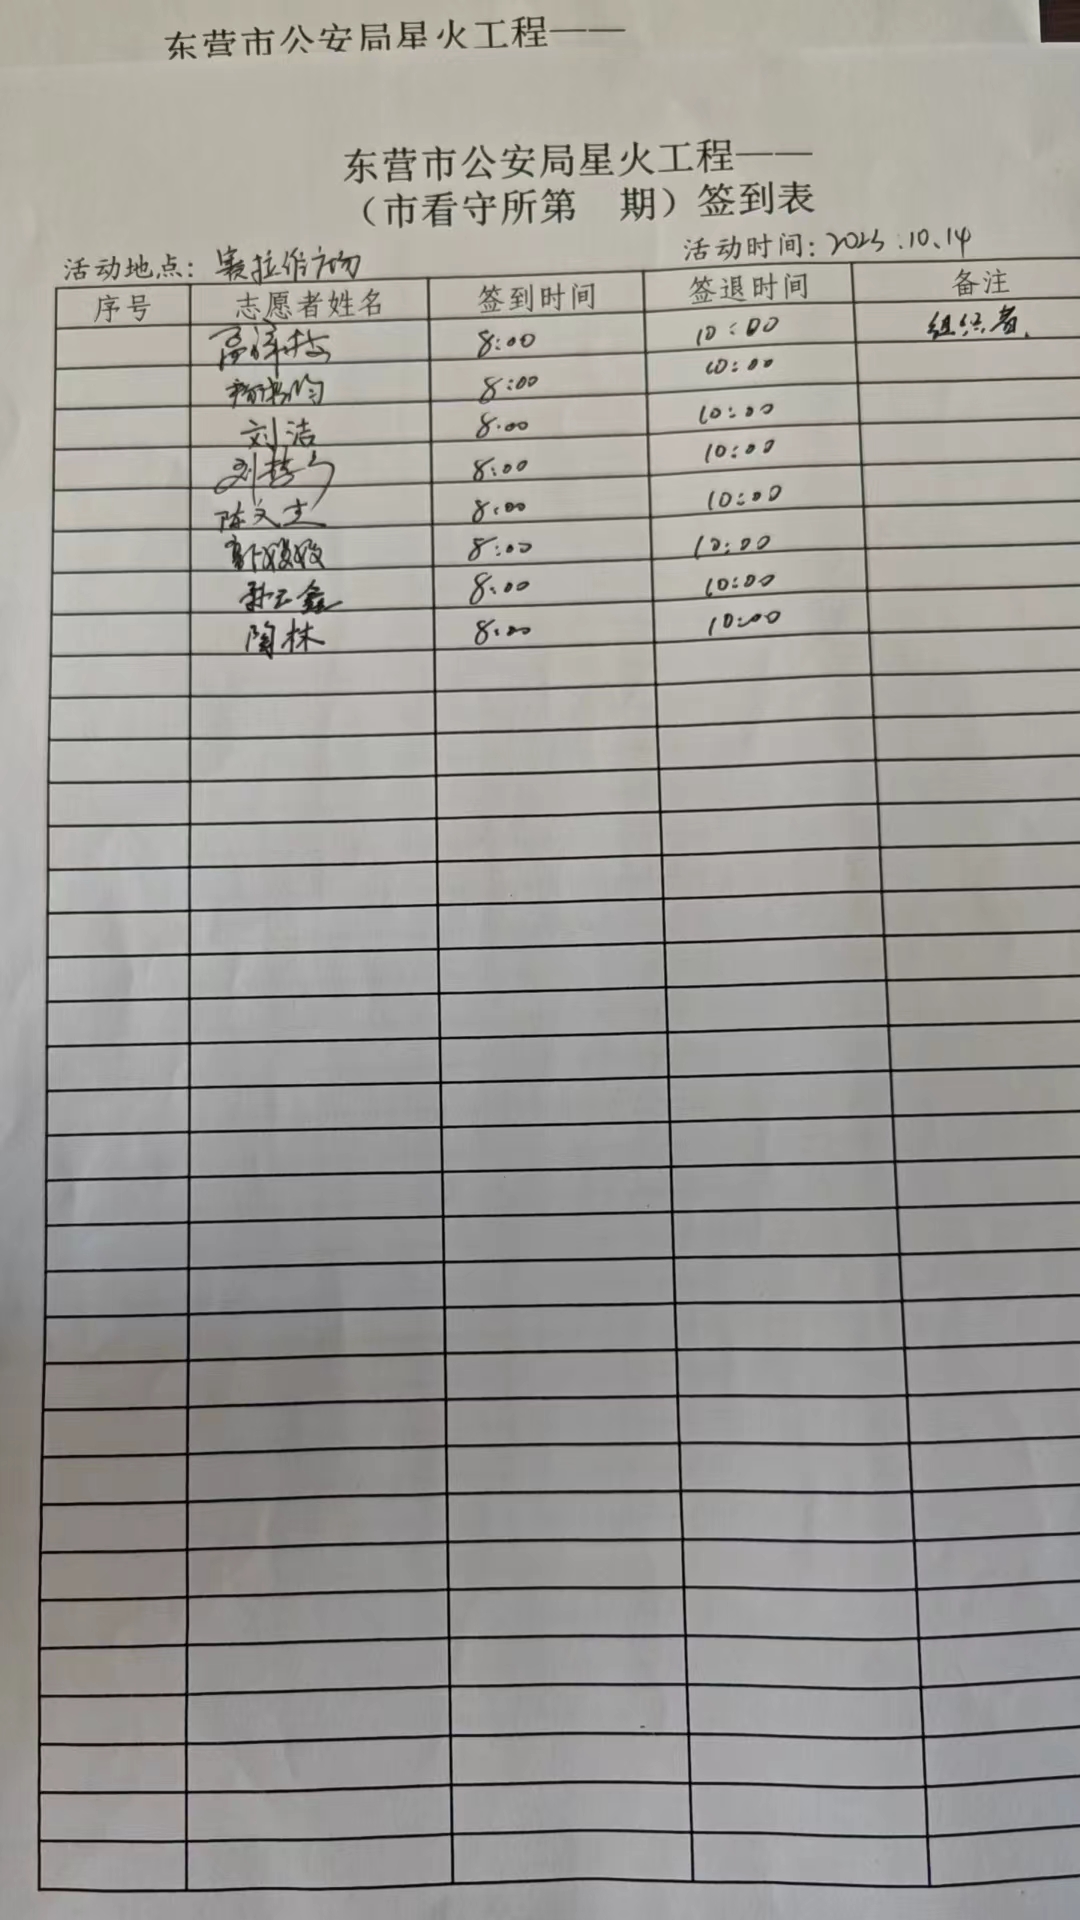 东营市公安局星火工程——
东营市公安局星火工程——
（市看守所第 期）签到表
活动地点：赛拉维广场 活动时间：2023.10.14
序号 志愿者姓名 签到时间 签退时间 备注
8:00 10:00 组织者.
8:00 10:00
刘洁 8:00 10:00
8:00 10:00
陈文杰 8:00 10:00
8:00 10:00
孙玉鑫 8:00 10:00
陶林 8:00 10:00